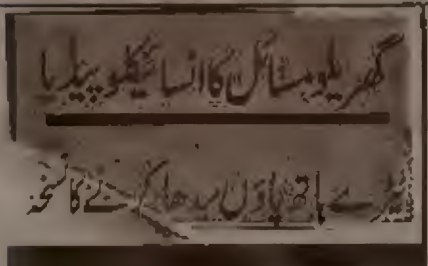 گھریلو مسائل کا انسائیکلوپیڈیا
ٹیڑے ہاتھ پاؤں سیدھا کرنے کا نسخہ